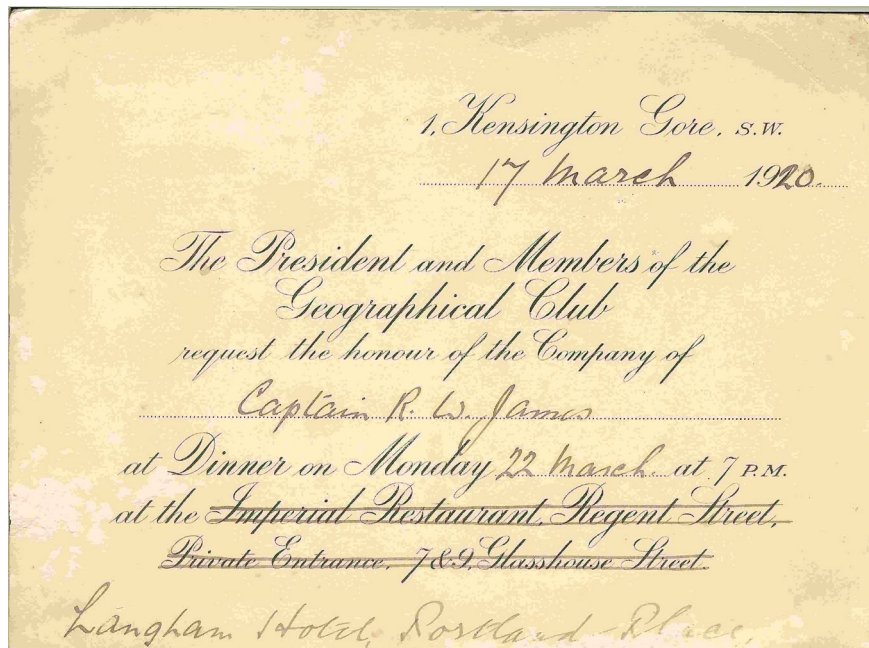 1, Kensington Gore, S.W.
17 March 1920.
The President and Members of the
Geographical Club
request the honour of the Company of
Captain R. W. James
at Dinner on Monday 22 March at 7 P.M.
at the Imperial Restaurant, Regent Street,
Private Entrance, 7 & 9, Glasshouse Street.
Langham Hotel, Portland Place,